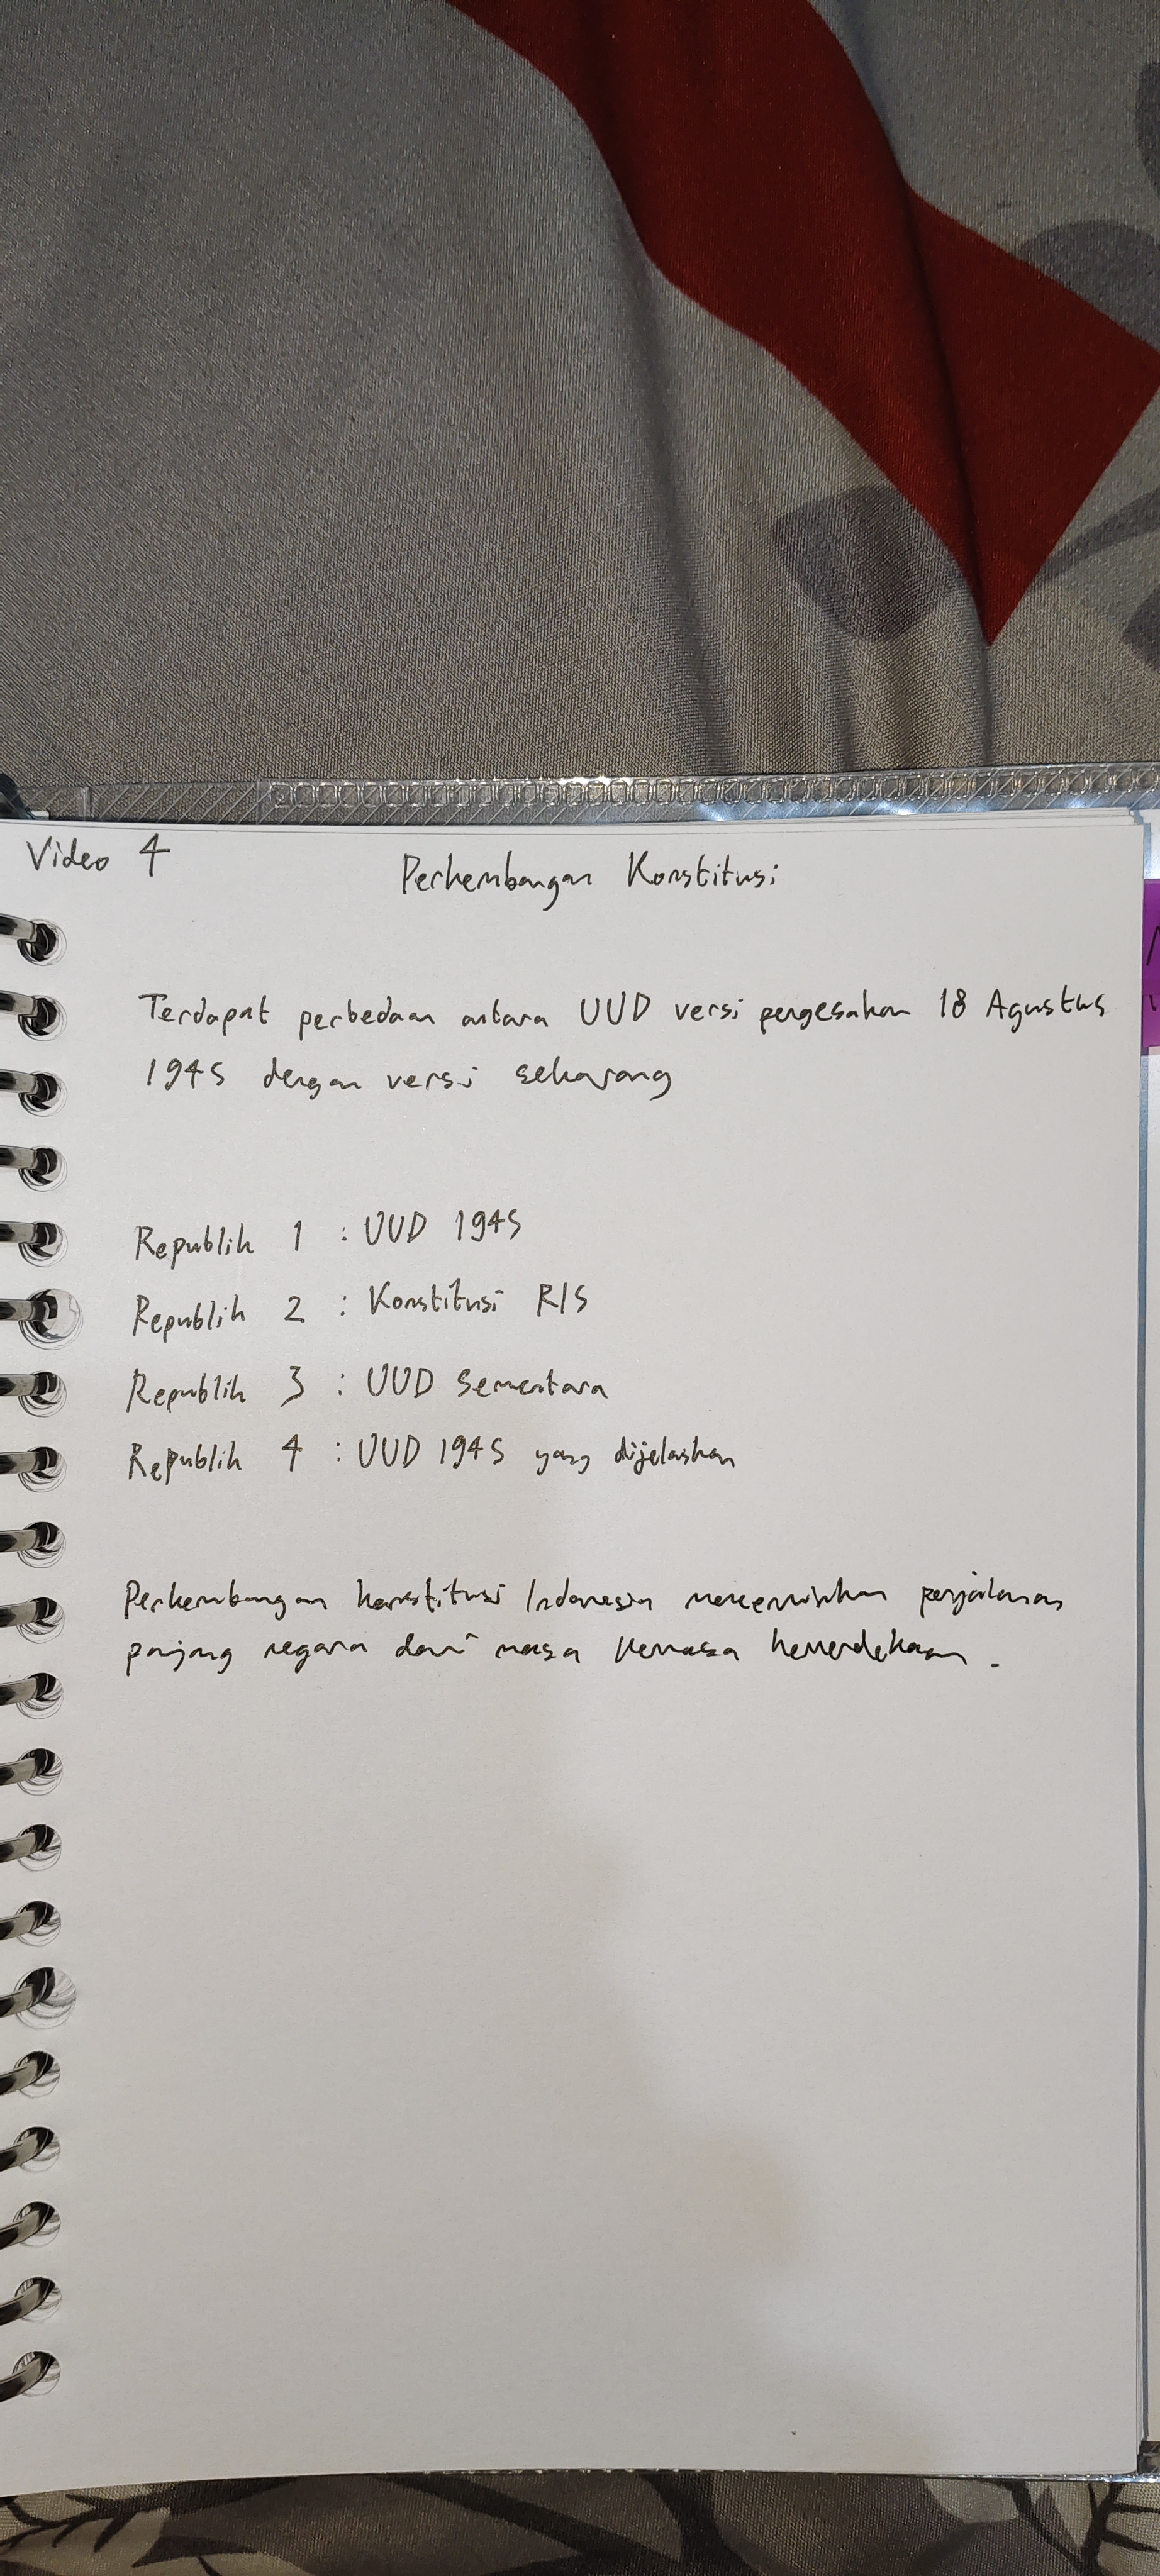 Video 4
Perkembangan Konstitusi
Terdapat perbedaan antara UUD versi pengesahan 18 Agustus
1945 dengan versi sekarang
Republik 1 : UUD 1945
Republik 2 : Konstitusi RIS
Republik 3 : UUD Sementara
Republik 4 : UUD 1945 yang dijelaskan
Perkembangan konstitusi Indonesia mencerminkan perjalanan
panjang negara dari masa kemasa kemerdekaan.